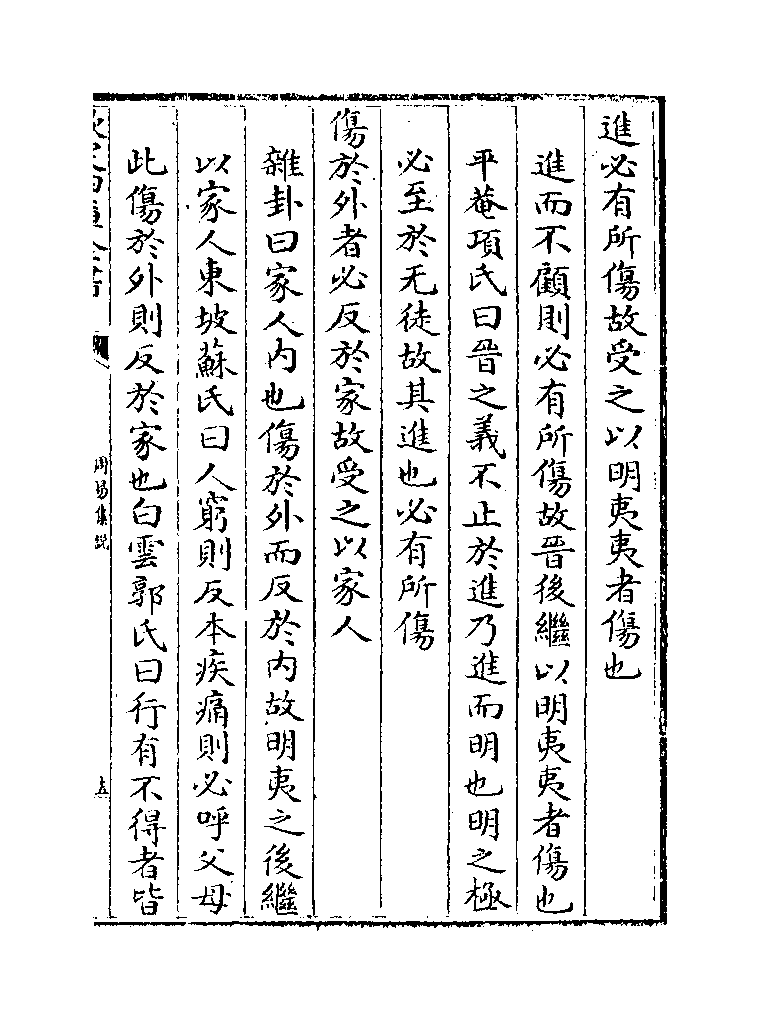 進必有所傷故受之以明夷夷者傷也
進而不顧則必有所傷故晉後繼以明夷夷者傷也
平菴項氏曰晉之義不止於進乃進而明也明之極
必至於无徒故其進也必有所傷
傷於外者必反於家故受之以家人
雜卦曰家人内也傷於外而反於内故明夷之後繼
以家人東坡蘇氏曰人窮則反本疾痛則必呼父母
此傷於外則反於家也白雲郭氏曰行有不得者皆
周易集説
五